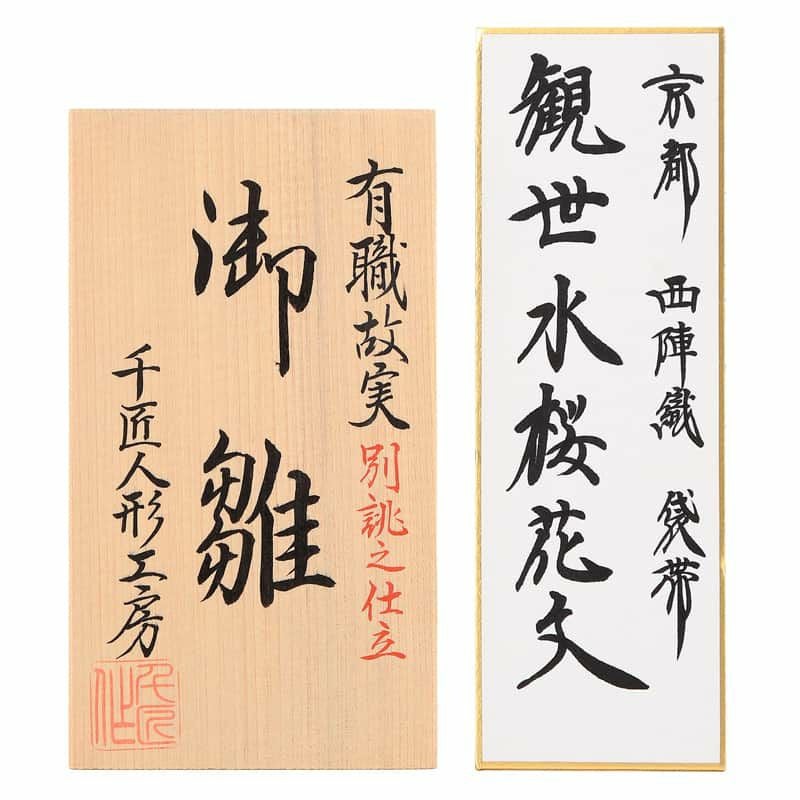 有職故実 別誂之仕立
御雛
千匠人形工房
京都 西陣織 袋帯
観世水桜花文